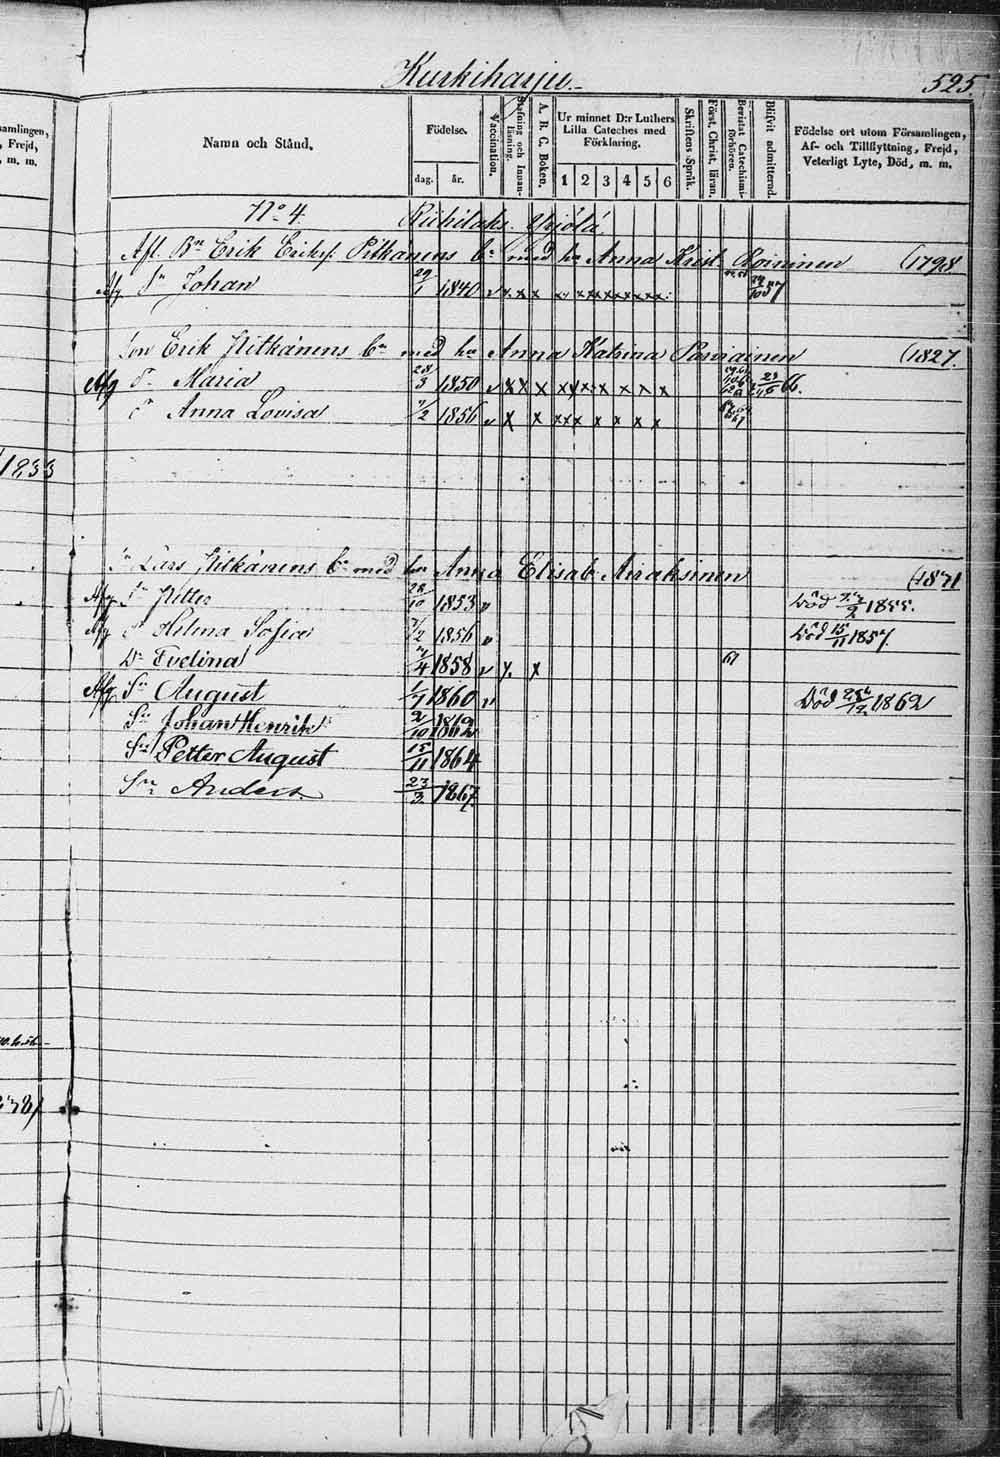 Kurkiharju.
525.
Namn och Stånd.
Födelse.
dag. år.
Vaccination.
Stafning och Innanläsning.
A. B. C. Boken.
Ur minnet D:r Luthers Lilla Cateches med Förklaring.
1 2 3 4 5 6
Skriftens Språk.
Först. Christ. läran.
Bevistat Catechismiförhören.
Blifvit admitterad.
Födelse ort utom Församlingen, Af- och Tillflyttning, Frejd, Veterligt Lyte, Död, m. m.
amlingen,
, Frejd,
, m. m.
No 4. Yrjölä.
Afl. Bn Erik Eriks. Pitkänens bn med hu Anna Krist (1798
Afg Sn Johan 29/1 1840
Son Erik Pitkänens bn med hu Anna Katrina Parviainen (1827.
Afg Dr Maria 28/3 1850 66.
Dr Anna Lovisa 7/2 1856
1233
Lars Pitkänens bn med hu Anna Elisab. Airaksinen (1871
Afg Sn Petter 28/10 1853 Död /2 1855.
Afg Dr Helena Sofia 7/2 1856 Död 15/11 1857.
Dr Evelina 7/4 1858 67
Afg Sn August 1/7 1860 Död /12 1862
Sn Johan Henrik 2/10 1862
Sn Petter August 15/11 1864
Sn Anders 23/3 1867